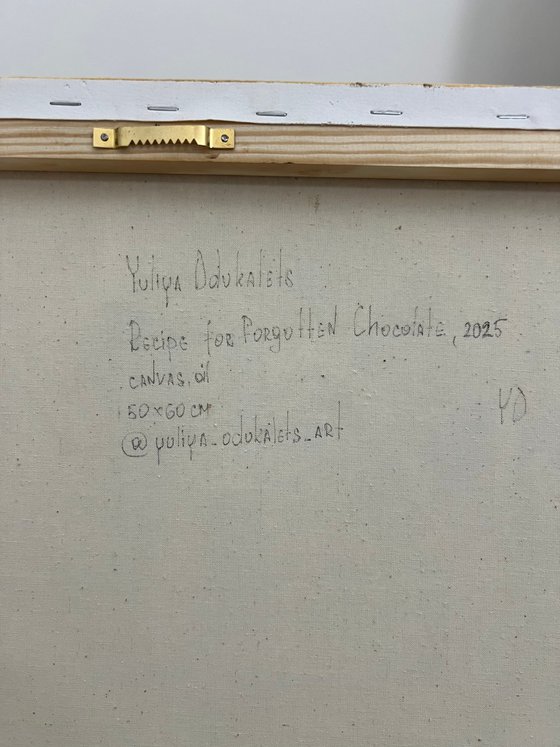 Yuliya Odukalets
Recipe for Forgotten Chocolate, 2025
canvas, oil
50x60 cm
YO
@yuliya_odukalets_art